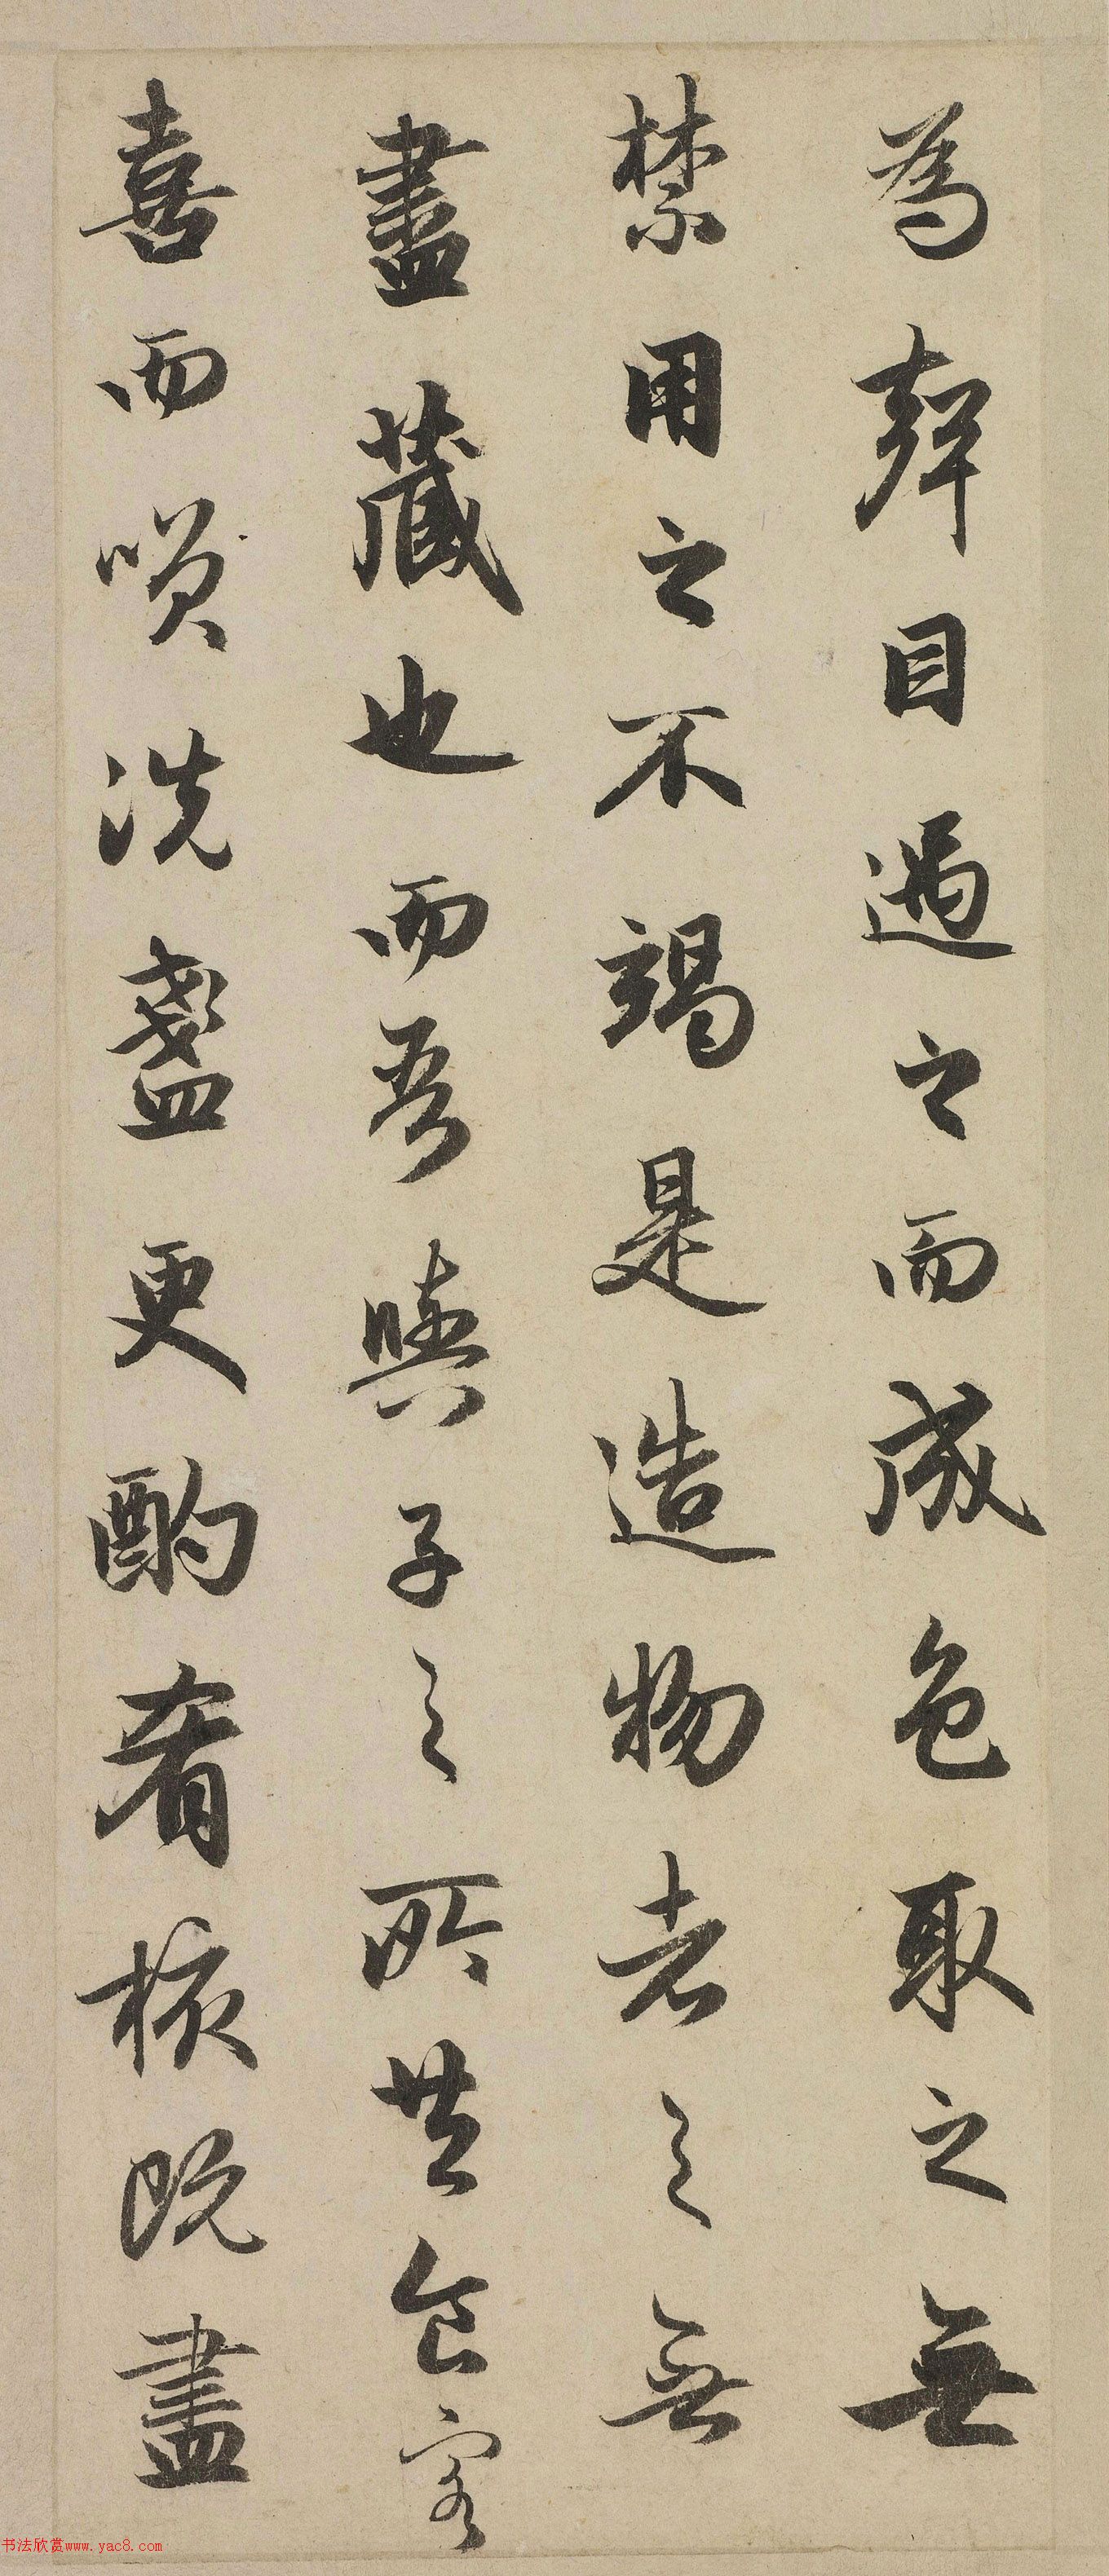 為聲目遇之而成色取之無
禁用之不竭是造物者之無
盡藏也而吾與子之所共食客
喜而笑洗盞更酌肴核既盡
书法欣赏www.yac8.com